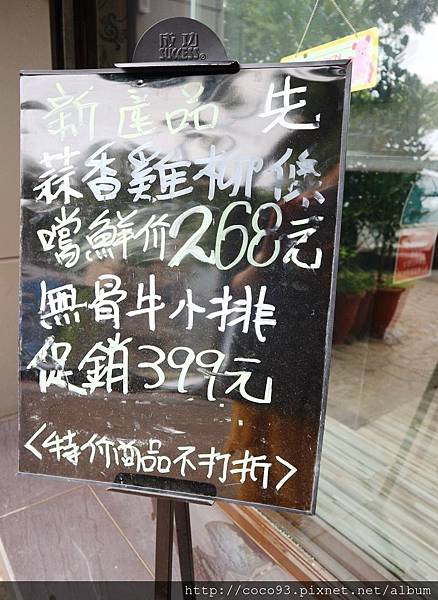 成功
SUCCESS®
新產品 先
蒜香雞柳條
嚐鮮价268元
無骨牛小排
促銷399元
<特价商品不打折>
http://coco93.pixnet.net/album